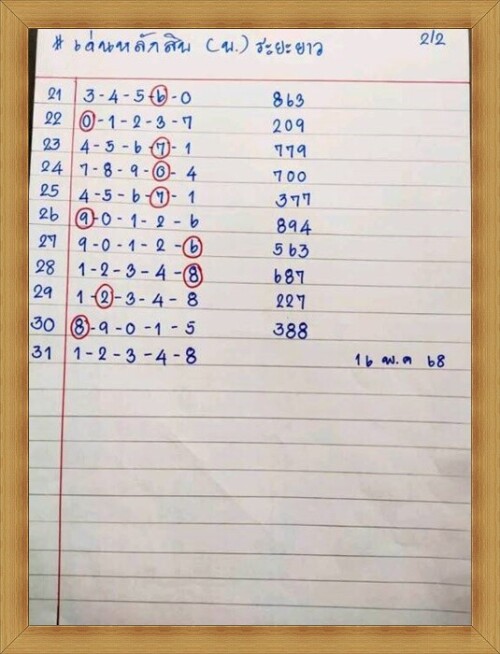 # เด่นหลักสิบ (บ.) ระยะยาว 2/2
21 3-4-5-6-0 863
22 0-1-2-3-7 209
23 4-5-6-7-1 779
24 7-8-9-0-4 700
25 4-5-6-7-1 377
26 9-0-1-2-6 894
27 9-0-1-2-6 563
28 1-2-3-4-8 687
29 1-2-3-4-8 227
30 8-9-0-1-5 388
31 1-2-3-4-8 16 พ.ค 68